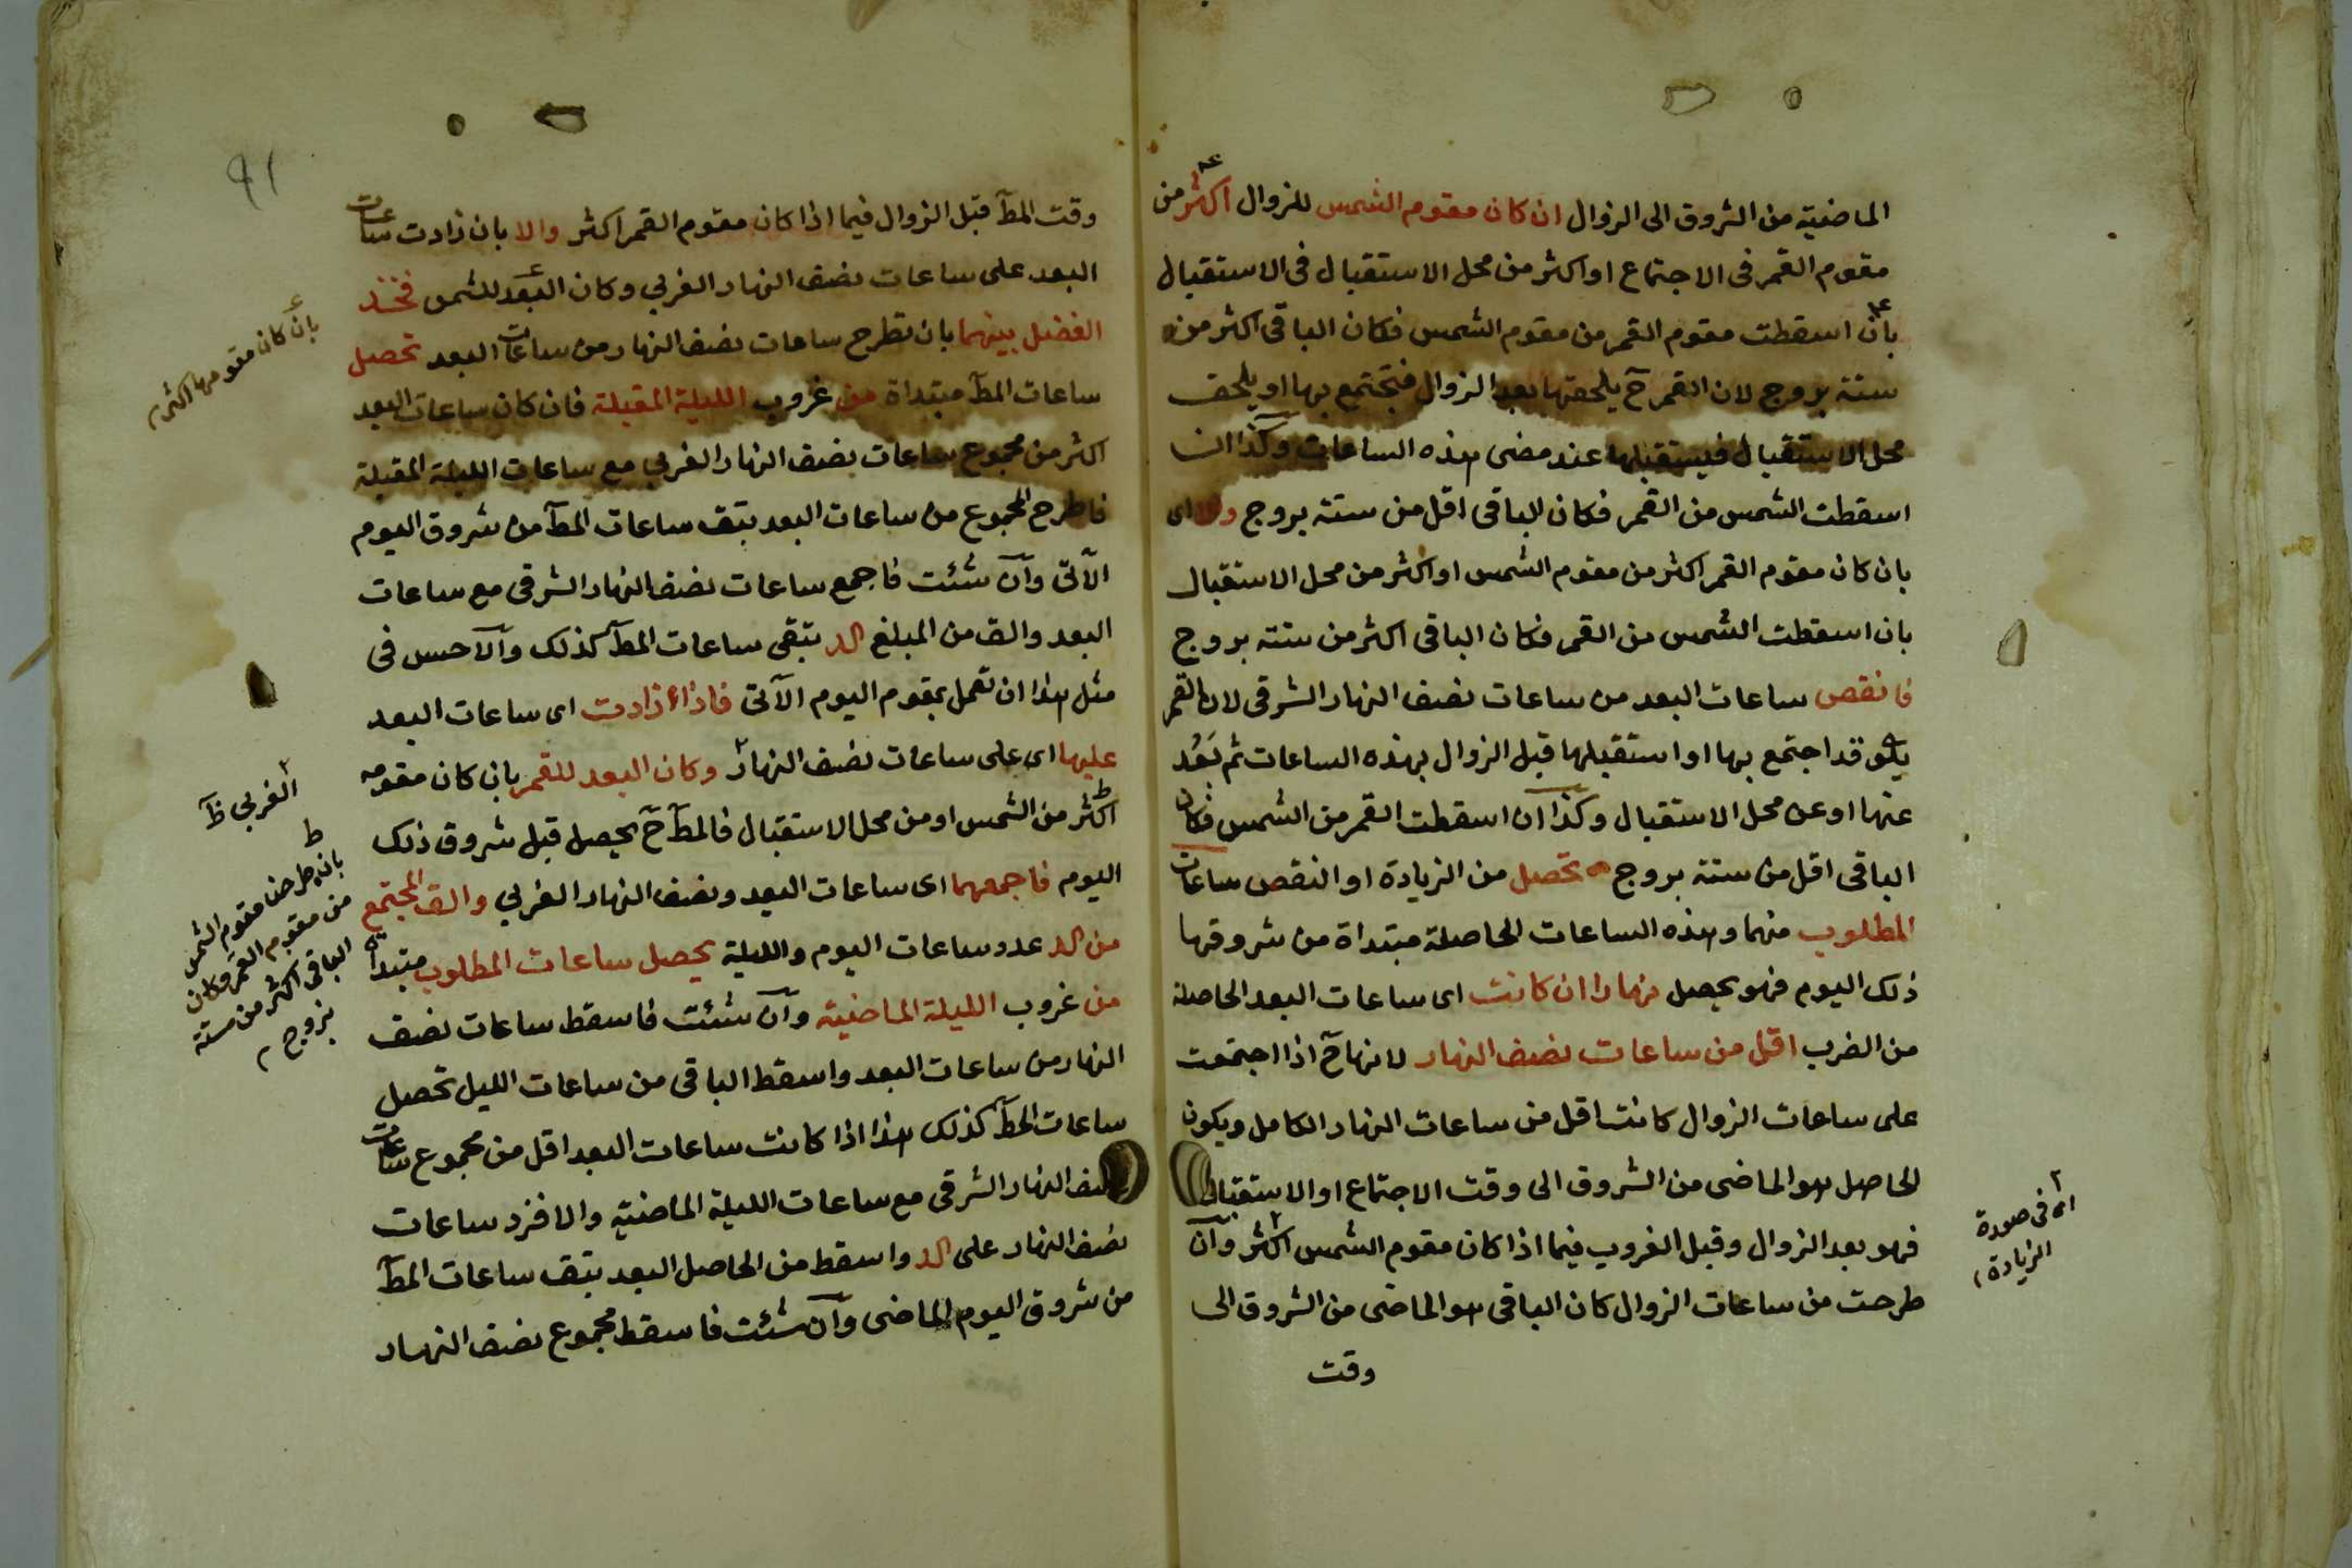 الماضية من الشروق الى الزوال ان كان مقوم الشمس للزوال اكثر من
مقوم القمر فى الاجتماع او اكثر من محل الاستقبال فى الاستقبال
بان اسقطت مقوم القمر من مقوم الشمس فكان الباقى اكثر من
ستة بروج لان القمر ح يلحقها بعد الزوال فتجتمع بها او يلحق
محل الاستقبال فيستقبلها عند مضى هذه الساعات وكذا ان
اسقطت الشمس من القمر فكان الباقى اقل من ستة بروج والا اى
بان كان مقوم القمر اكثر من مقوم الشمس او اكثر من محل الاستقبال
بان اسقطت الشمس من القمر فكان الباقى اكثر من ستة بروج
فانقص ساعات البعد من ساعات نصف النهار الشرقى لان القمر
يكون قد اجتمع بها او استقبلها قبل الزوال بهذه الساعات ثم بَعُد
عنها او عن محل الاستقبال وكذا ان اسقطت القمر من الشمس فكان
الباقى اقل من ستة بروج تحصل من الزيادة او النقص ساعات
المطلوب منهما وهذه الساعات الحاصلة مبتداة من شروقها
ذلك اليوم فهو يحصل نهارا ان كانت اى ساعات البعد الحاصلة
من الضرب اقل من ساعات نصف النهار لانها ح اذا اجتمعت
على ساعات الزوال كانت اقل من ساعات النهار الكامل ويكون
الحاصل هو الماضى من الشروق الى وقت الاجتماع او الاستقبال
فهو بعد الزوال وقبل الغروب فيما اذا كان مقوم الشمس اكثر وان
طرحت من ساعات الزوال كان الباقى هو الماضى من الشروق الى
وقت
اى فى صورة
الزيادة
٩١
وقت المط قبل الزوال فيما اذا كان مقوم القمر اكثر والا بان زادت ساعات
البعد على ساعات نصف النهار الغربي وكان البعد للشمس فخذ
الفضل بينهما بان تطرح ساعات نصف النهار من ساعات البعد تحصل
ساعات المط مبتداة من غروب الليلة المقبلة فان كان ساعات البعد
اكثر من مجموع ساعات نصف النهار الغربي مع ساعات الليلة المقبلة
فاطرح المجموع من ساعات البعد يبق ساعات المط من شروق اليوم
الآتى وان شئت فاجمع ساعات نصف النهار الشرقى مع ساعات
البعد والق من المبلغ الد تبقى ساعات المط كذلك والاحسن فى
مثل هذا ان تعمل بمقوم اليوم الآتى فاذا زادت اى ساعات البعد
عليها اى على ساعات نصف النهار وكان البعد للقمر بان كان مقومه
اكثر من الشمس او من محل الاستقبال فالمط ح يحصل قبل شروق ذلك
اليوم فاجمعهما اى ساعات البعد ونصف النهار الغربي والق المجتمع
من الد عدد ساعات اليوم والليلة يحصل ساعات المطلوب مبتداة
من غروب الليلة الماضية وان شئت فاسقط ساعات نصف
النهار من ساعات البعد واسقط الباقى من ساعات الليل تحصل
ساعات المط كذلك هذا اذا كانت ساعات البعد اقل من مجموع ساعات
نصف النهار الشرقى مع ساعات الليلة الماضية والا فزد ساعات
نصف النهار على الد واسقط من الحاصل البعد يبق ساعات المط
من شروق اليوم الماضى وان شئت فاسقط مجموع نصف النهار
بان كان مقومها اكثر
الغربي ظ
بان طرحت مقوم الشمس
من مقوم القمر وكان
الباقى اكثر من ستة
بروج